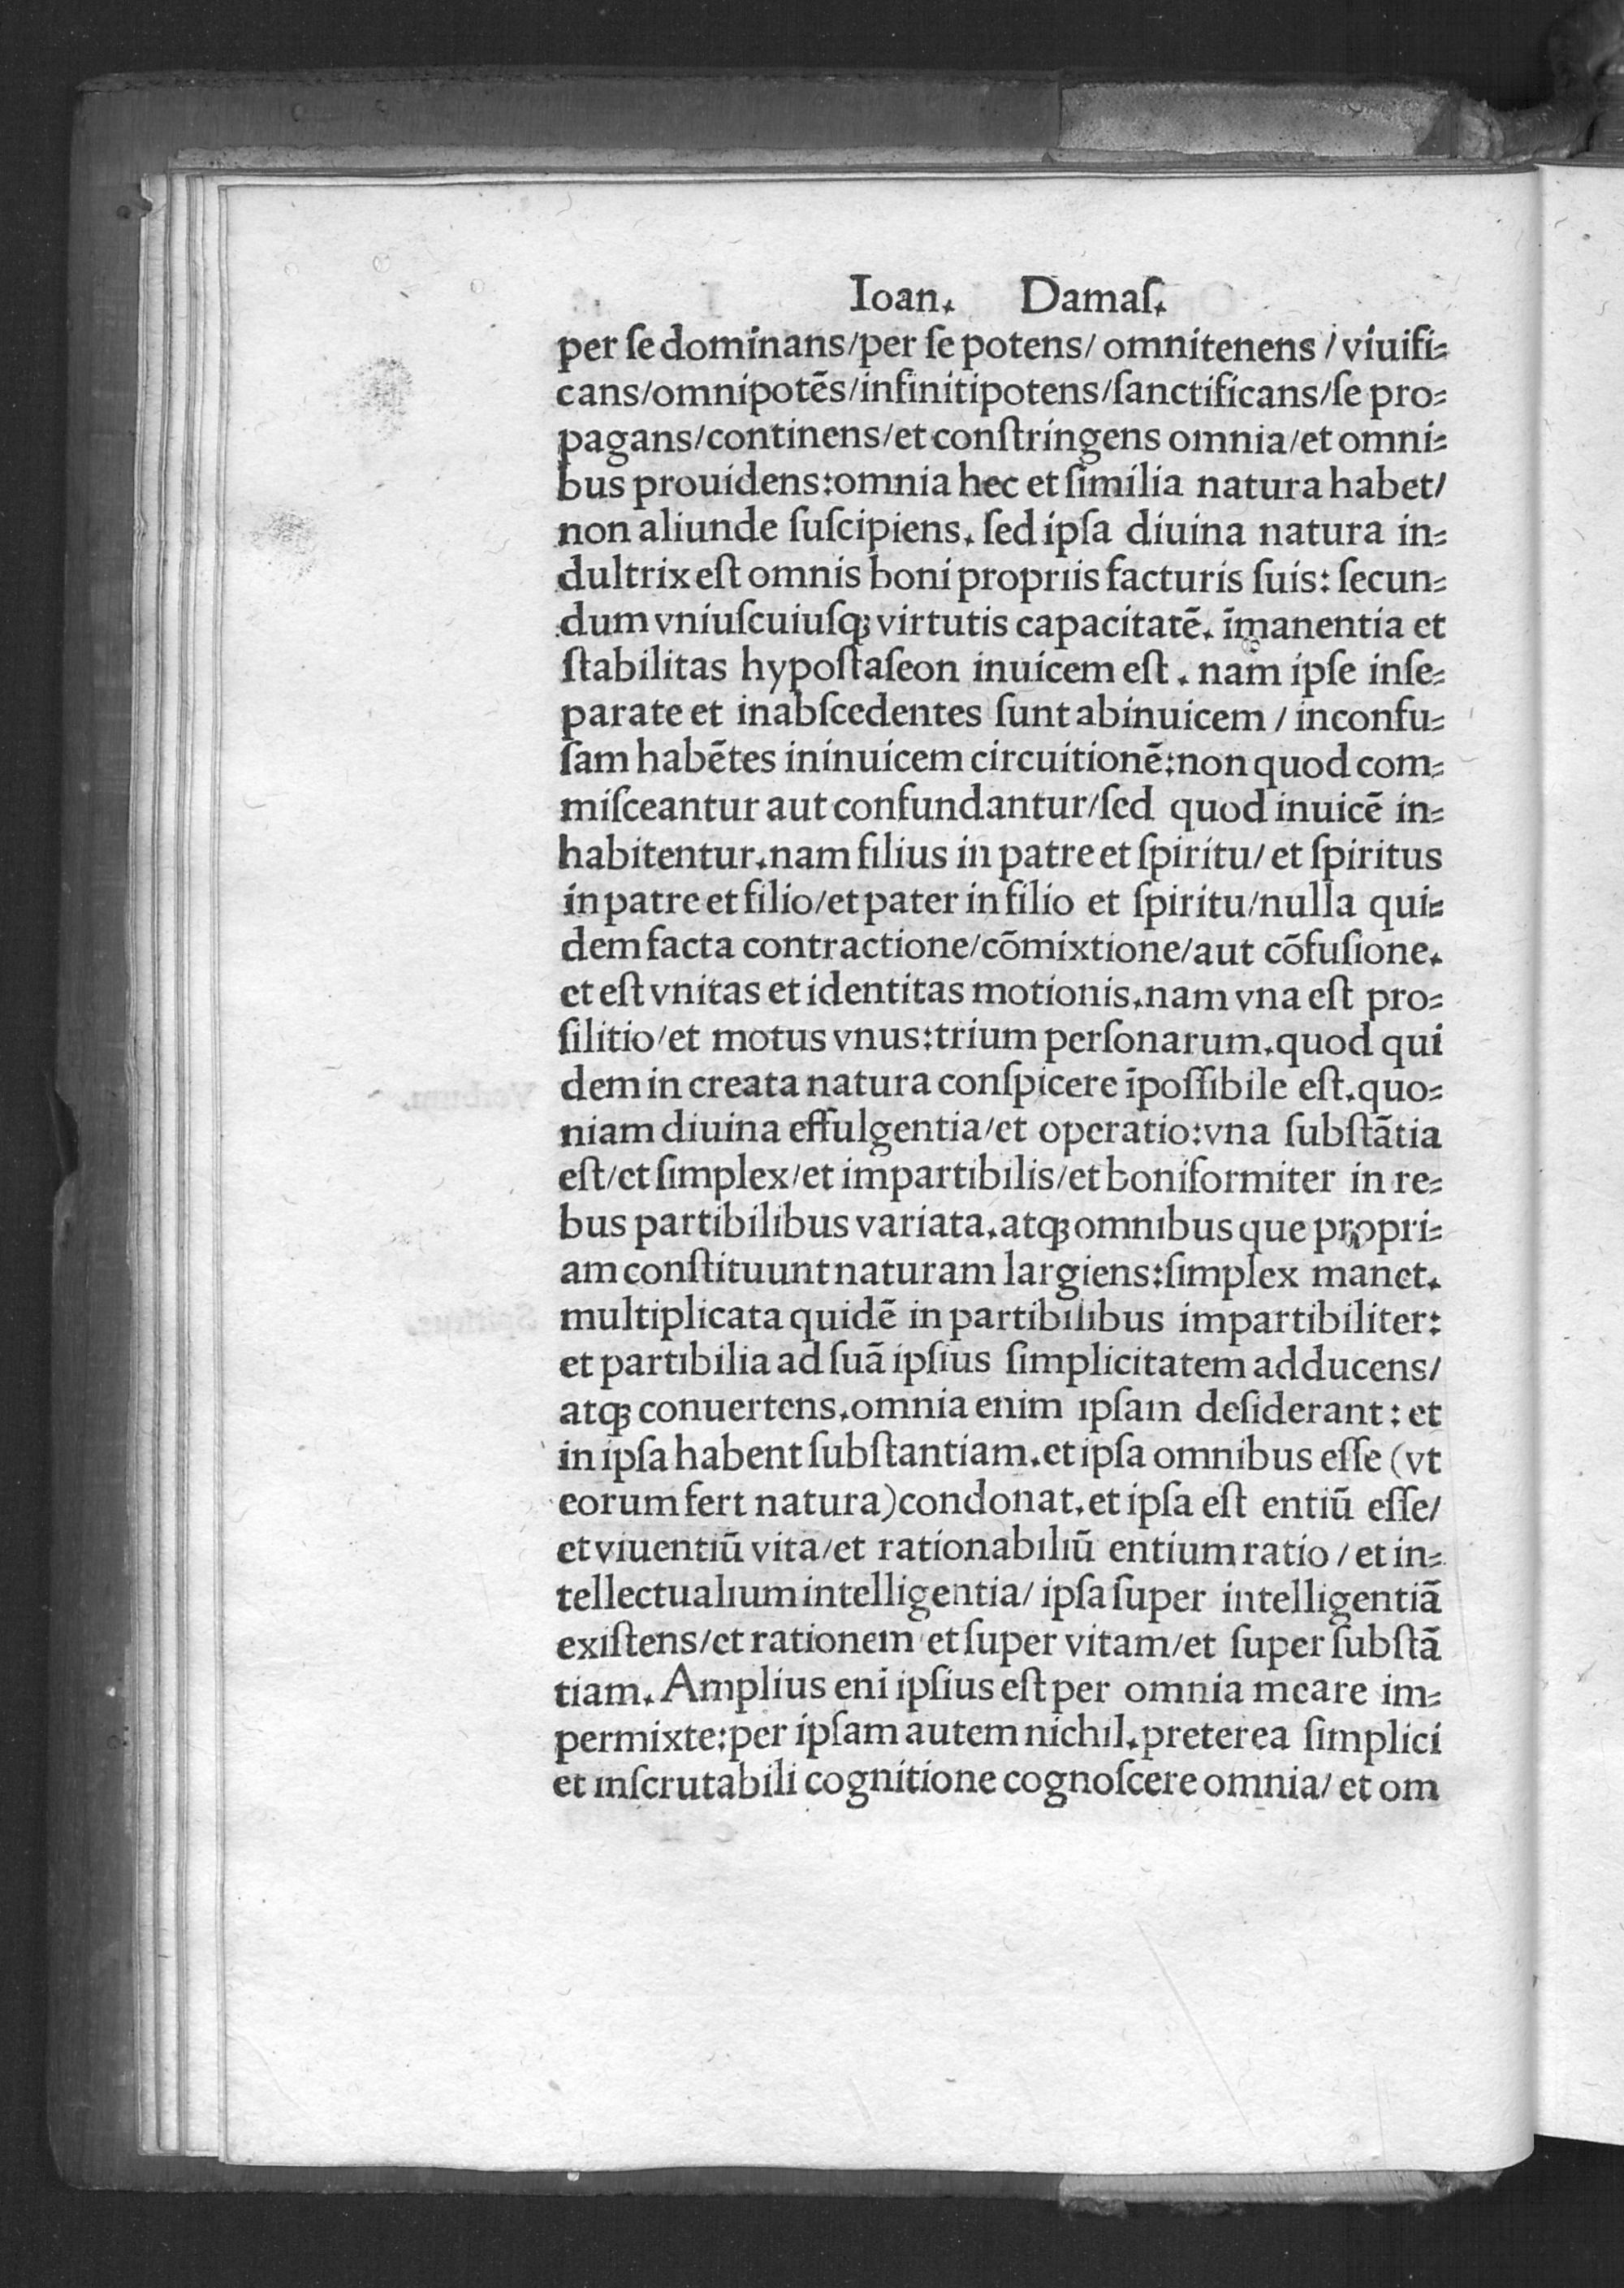 Ioan. Damaſ.
per ſe dominans/per ſe potens/ omnitenens / viuifi⸗
cans/omnipotẽs/infinitipotens/ſanctificans/ſe pro⸗
pagans/continens/et conſtringens omnia/et omni⸗
bus prouidens:omnia hec et ſimilia natura habet/
non aliunde ſuſcipiens. ſed ipſa diuina natura in⸗
dultrix eſt omnis boni propriis facturis ſuis: ſecun⸗
dum vniuſcuiuſqꝫ virtutis capacitatẽ. ĩmanentia et
ſtabilitas hypoſtaſeon inuicem eſt . nam ipſe inſe⸗
parate et inabſcedentes ſunt abinuicem / inconfu⸗
ſam habẽtes ininuicem circuitionẽ:non quod com⸗
miſceantur aut confundantur/ſed quod inuicẽ in⸗
habitentur.nam filius in patre et ſpiritu/ et ſpiritus
in patre et filio/et pater in filio et ſpiritu/nulla qui⸗
dem facta contractione/cõmixtione/aut cõfuſione.
et eſt vnitas et identitas motionis.nam vna eſt pro⸗
ſilitio/et motus vnus:trium perſonarum.quod qui
dem in creata natura conſpicere ĩpoſſibile eſt.quo⸗
niam diuina effulgentia/et operatio:vna ſubſtãtia
eſt/et ſimplex/et impartibilis/et boniformiter in re⸗
bus partibilibus variata.atqꝫ omnibus que propri⸗
am conſtituunt naturam largiens:ſimplex manet.
multiplicata quidẽ in partibilibus impartibiliter:
et partibilia ad ſuã ipſius ſimplicitatem adducens/
atqꝫ conuertens.omnia enim ipſam deſiderant : et
in ipſa habent ſubſtantiam.et ipſa omnibus eſſe (vt
eorum fert natura)condonat.et ipſa eſt entiũ eſſe/
et viuentiũ vita/et rationabiliũ entium ratio / et in⸗
tellectualium intelligentia/ ipſa ſuper intelligentiã
exiſtens/et rationem et ſuper vitam/et ſuper ſubſtã
tiam. Amplius eni ipſius eſt per omnia meare im⸗
permixte:per ipſam autem nichil.preterea ſimplici
et inſcrutabili cognitione cognoſcere omnia/ et om